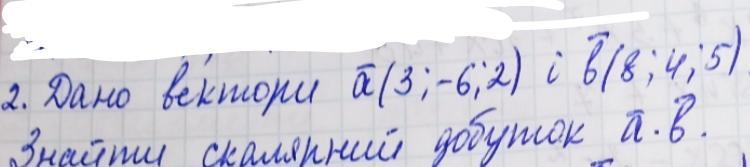 2. Дано вектори ā(3;-6;2) і b̄(8;4;5)
Знайти скалярний добуток ā·b̄.